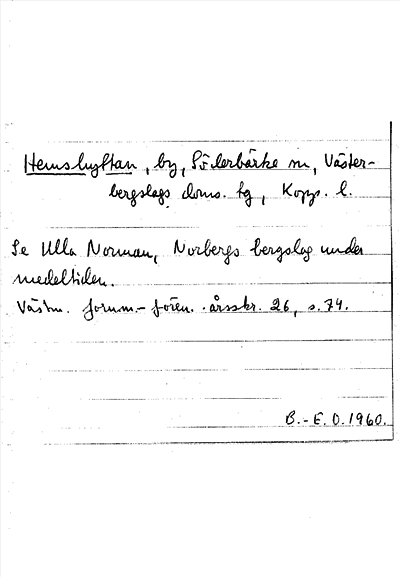 Hemshyttan, by, Söderbärke sn, Väster-
bergslags doms. tg, Kopp. l.
Se Ulla Norman, Norbergs bergslag under
medeltiden.
Västm. fornm.-fören. årsskr. 26, s. 74.
B.-E. O. 1960.